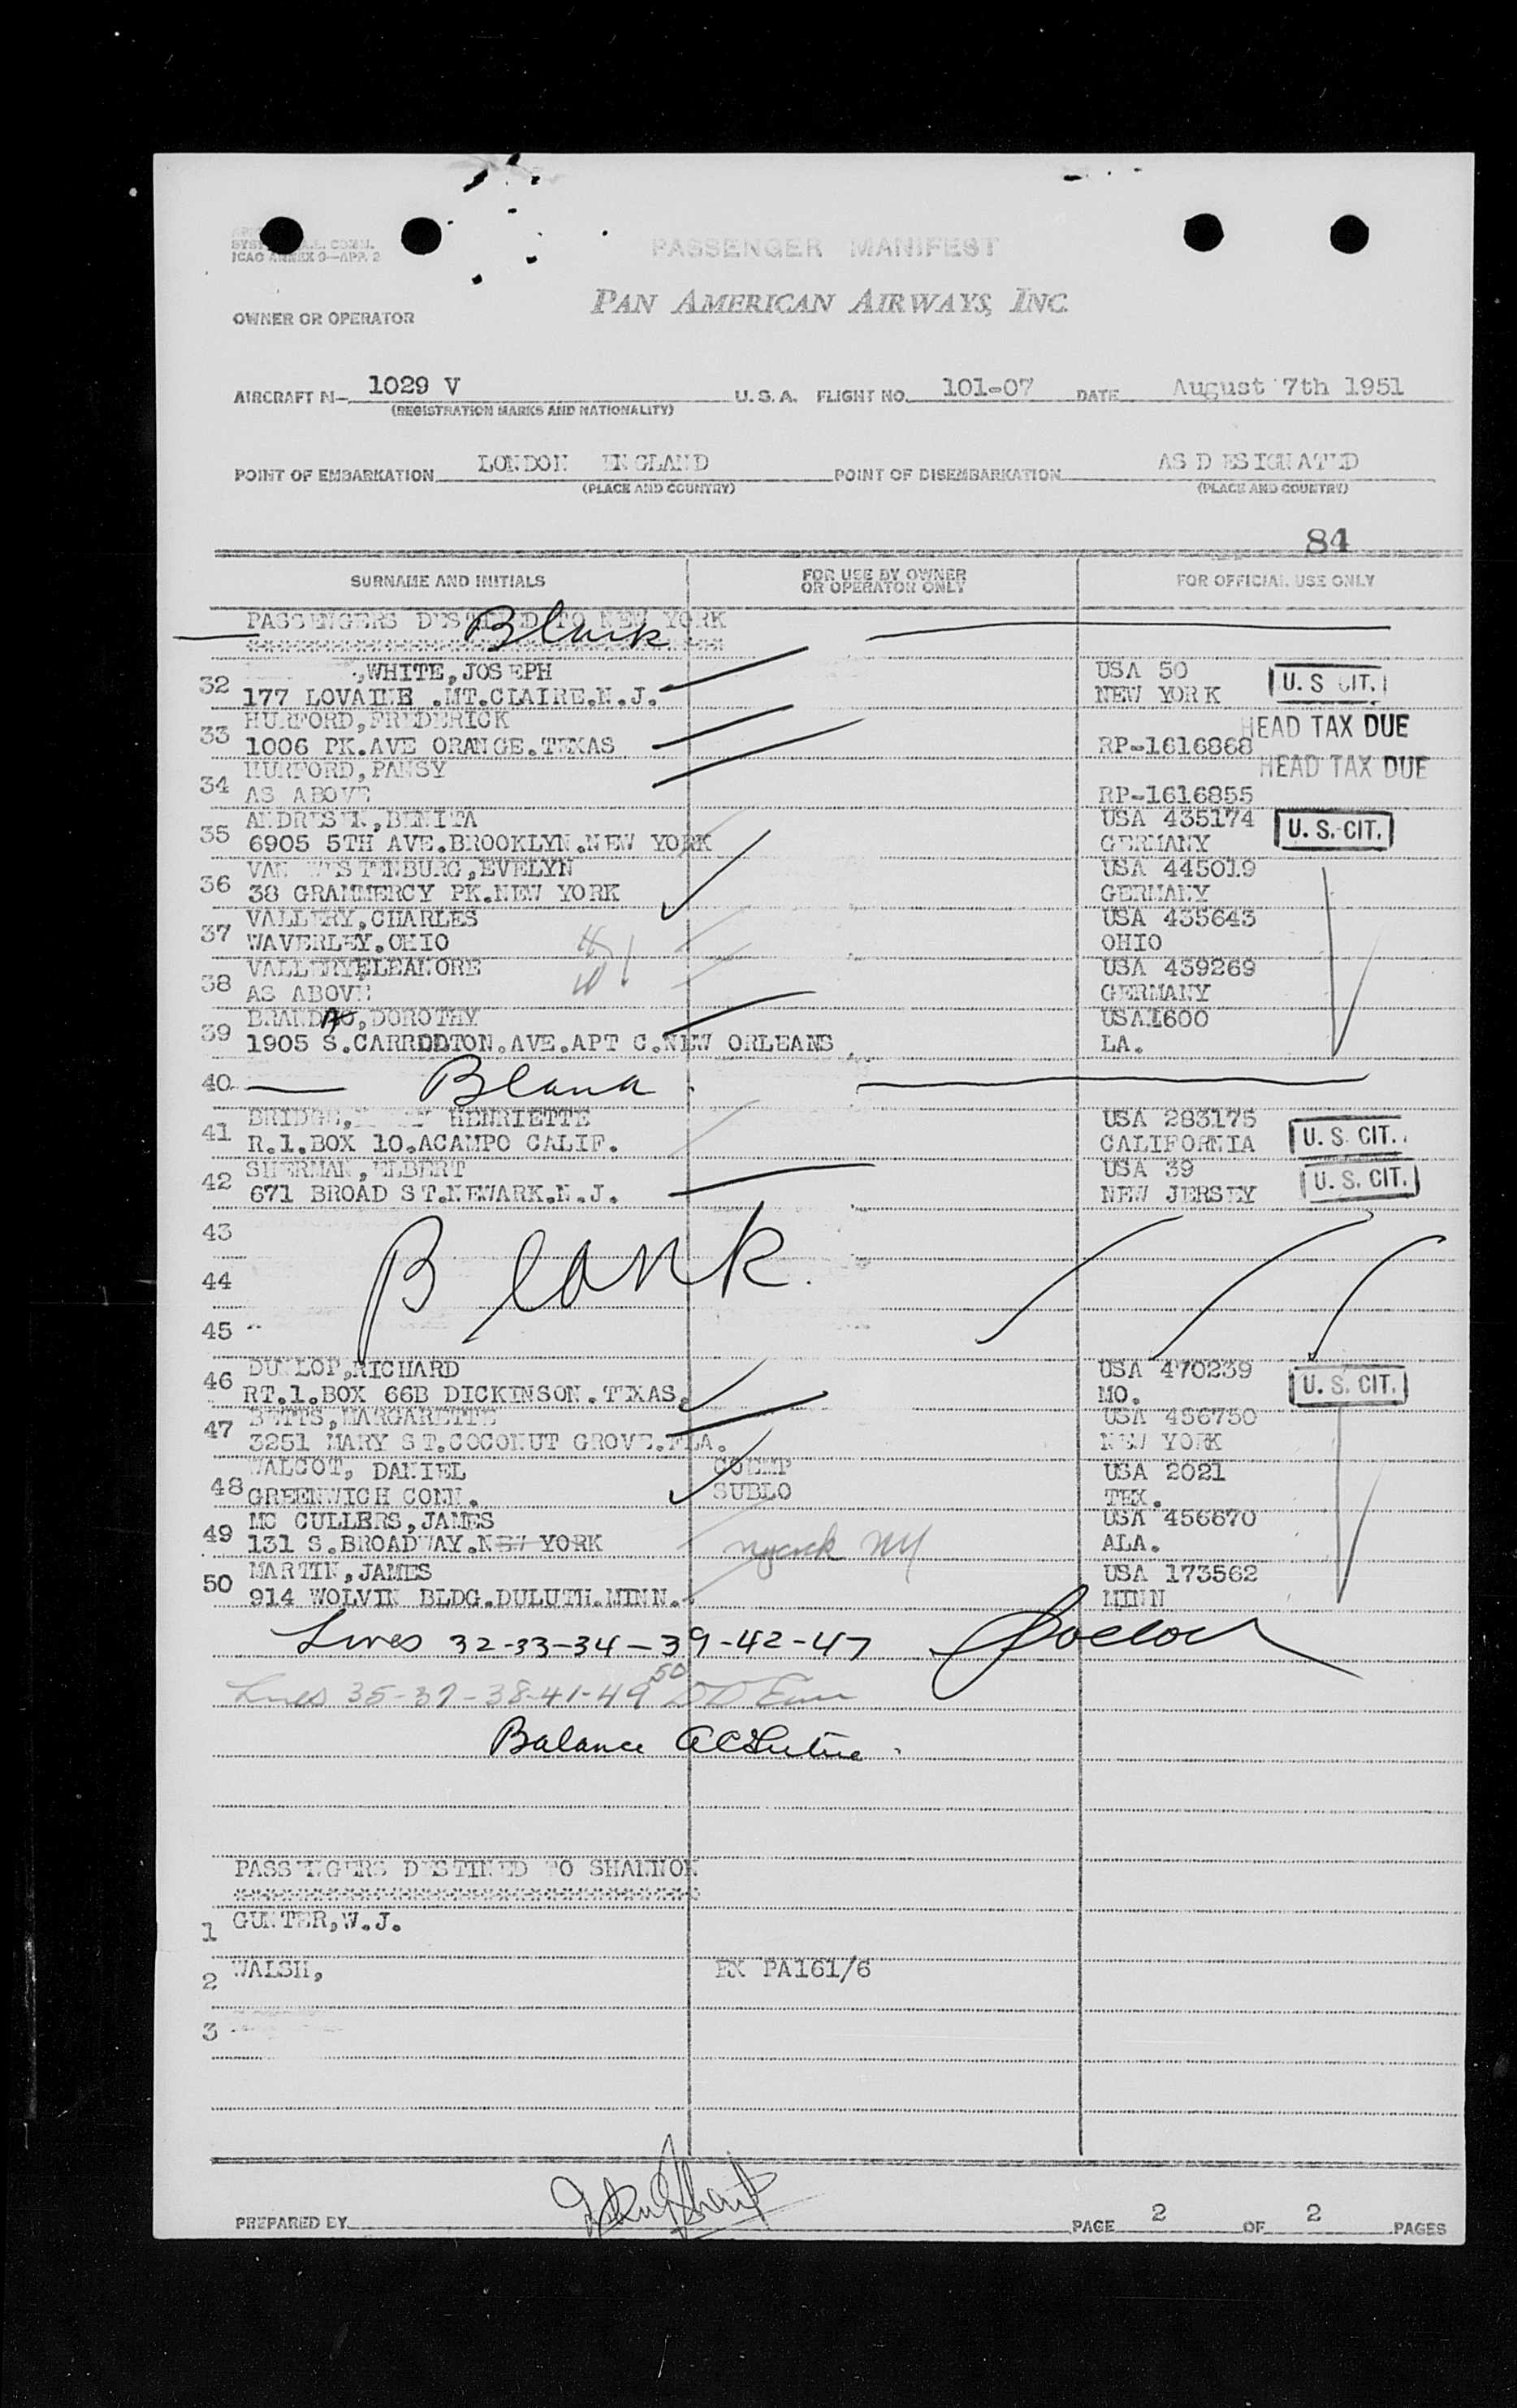 ICAO ANNEX 9—APP. 2
PASSENGER MANIFEST
PAN AMERICAN AIRWAYS, INC.
OWNER OR OPERATOR
AIRCRAFT N- 1029 V U.S.A. FLIGHT NO. 101-07 DATE August 7th 1951
(REGISTRATION MARKS AND NATIONALITY)
POINT OF EMBARKATION LONDON ENGLAND POINT OF DISEMBARKATION AS DESIGNATED
(PLACE AND COUNTRY) (PLACE AND COUNTRY)
84
SURNAME AND INITIALS FOR USE BY OWNER OR OPERATOR ONLY FOR OFFICIAL USE ONLY
PASSENGERS DESTINED TO NEW YORK
Blank
32 ,WHITE,JOSEPH USA 50 U.S. CIT.
177 LOVAINE .MT.CLAIRE.N.J. NEW YORK
33 HURFORD,FREDERICK HEAD TAX DUE
1006 PK.AVE ORANGE.TEXAS RP-1616868
34 HURFORD,PANSY HEAD TAX DUE
AS ABOVE RP-1616855
35 ANDRESEN,BENITA USA 435174 U.S. CIT.
6905 5TH AVE.BROOKLYN.NEW YORK GERMANY
36 VAN WESTENBURG,EVELYN USA 445019
38 GRAMMERCY PK.NEW YORK GERMANY
37 VALLERY,CHARLES USA 435643
WAVERLEY.OHIO OHIO
38 VALLERY,ELEANORE USA 439269
AS ABOVE GERMANY
39 BRANDAO,DOROTHY USA1600
1905 S.CARROLTON.AVE.APT C.NEW ORLEANS LA.
40 Blank
41 BRIDGE, HENRIETTE USA 283175 U.S. CIT.
R.1.BOX 10.ACAMPO CALIF. CALIFORNIA
42 SHERMAN,ELBERT USA 39 U.S. CIT.
671 BROAD ST.NEWARK.N.J. NEW JERSEY
43
Blank
44
45
46 DUNLOP,RICHARD USA 470239 U.S. CIT.
RT.1.BOX 66B DICKINSON.TEXAS. MO.
47 BETTS,MARGARETTE USA 456750
3251 MARY ST.COCONUT GROVE.FLA. NEW YORK
48 WALCOT, DANIEL COEMP USA 2021
GREENWICH CONN. SUBLO TEX.
49 MC CULLERS,JAMES USA 456670
131 S.BROADWAY.NEW YORK nyack NY ALA.
50 MARTIN,JAMES USA 173562
914 WOLVIN BLDG.DULUTH.MINN. MINN
Lines 32-33-34-39-42-47
Lines 35-37-38-41-49 50
Balance
PASSENGERS DESTINED TO SHANNON
1 GUNTER,W.J.
2 WALSH, EX PA161/6
3
PREPARED BY PAGE 2 OF 2 PAGES